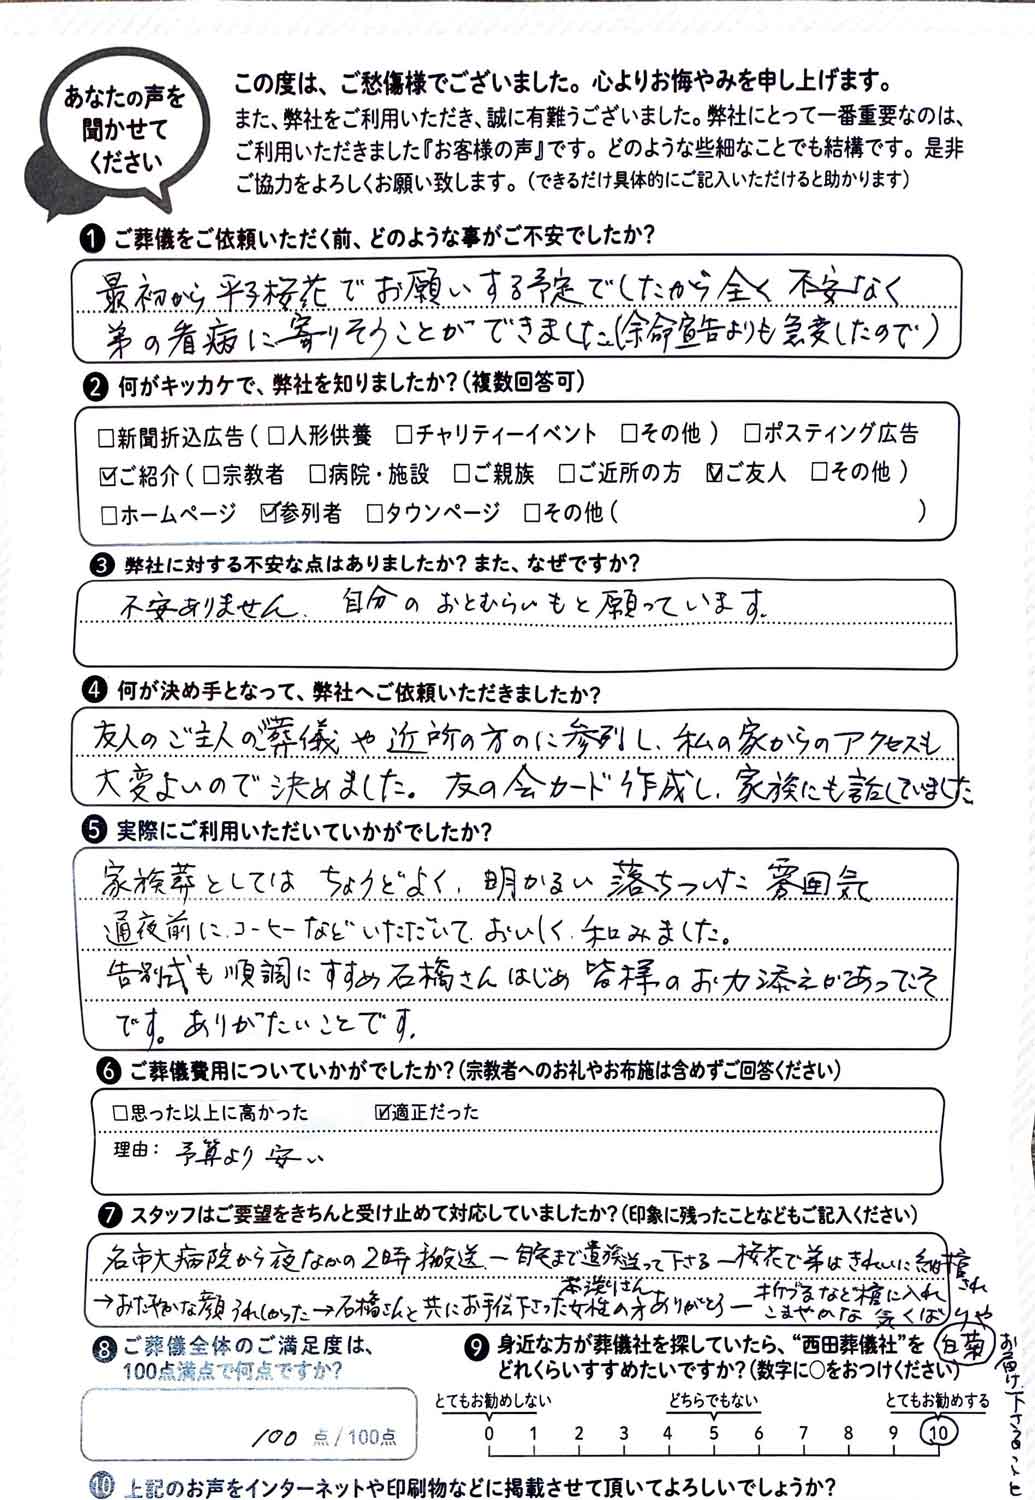 あなたの声を
聞かせて
ください
この度は、ご愁傷様でございました。心よりお悔やみを申し上げます。
また、弊社をご利用いただき、誠に有難うございました。弊社にとって一番重要なのは、
ご利用いただきました『お客様の声』です。どのような些細なことでも結構です。是非
ご協力をよろしくお願い致します。(できるだけ具体的にご記入いただけると助かります)
❶ ご葬儀をご依頼いただく前、どのような事がご不安でしたか?
最初から平子桜花でお願いする予定でしたから全く不安なく
弟の看病に寄りそうことができました(余命宣告よりも急変したので)
❷ 何がキッカケで、弊社を知りましたか?(複数回答可)
□新聞折込広告(□人形供養 □チャリティーイベント □その他) □ポスティング広告
☑ご紹介(□宗教者 □病院・施設 □ご親族 □ご近所の方 ☑ご友人 □その他)
□ホームページ ☑参列者 □タウンページ □その他( )
❸ 弊社に対する不安な点はありましたか?また、なぜですか?
不安ありません、自分のおとむらいもと願っています。
❹ 何が決め手となって、弊社へご依頼いただきましたか?
友人のご主人の葬儀や近所の方のに参列し、私の家からのアクセスも
大変よいので決めました。友の会カード作成し、家族にも話していました
❺ 実際にご利用いただいていかがでしたか?
家族葬としてはちょうどよく、明かるい落ちついた雰囲気
通夜前に、コーヒーなどいただいて、おいしく、和みました。
告別式も順調にすすめ石橋さんはじめ皆様のお力添えがあってこそ
です。ありがたいことです。
❻ ご葬儀費用についていかがでしたか?(宗教者へのお礼やお布施は含めずご回答ください)
□思った以上に高かった ☑適正だった
理由: 予算より安い
❼ スタッフはご要望をきちんと受け止めて対応していましたか?(印象に残ったことなどもご記入ください)
名市大病院から夜なかの2時搬送ー自宅まで遺族送って下さるー桜花で弟はきれいに納棺され
→おだやかな顔うれしかった→石橋さんと共にお手伝下さった女性の方ありがとうー
折づるなど棺に入れ
こまやかな気くばりや
白菊
お届け下さること
❽ ご葬儀全体のご満足度は、
100点満点で何点ですか?
100 点/100点
❾ 身近な方が葬儀社を探していたら、“西田葬儀社”を
どれくらいすすめたいですか?(数字に○をおつけください)
とてもお勧めしない どちらでもない とてもお勧めする
0 1 2 3 4 5 6 7 8 9 10
❿ 上記のお声をインターネットや印刷物などに掲載させて頂いてよろしいでしょうか?